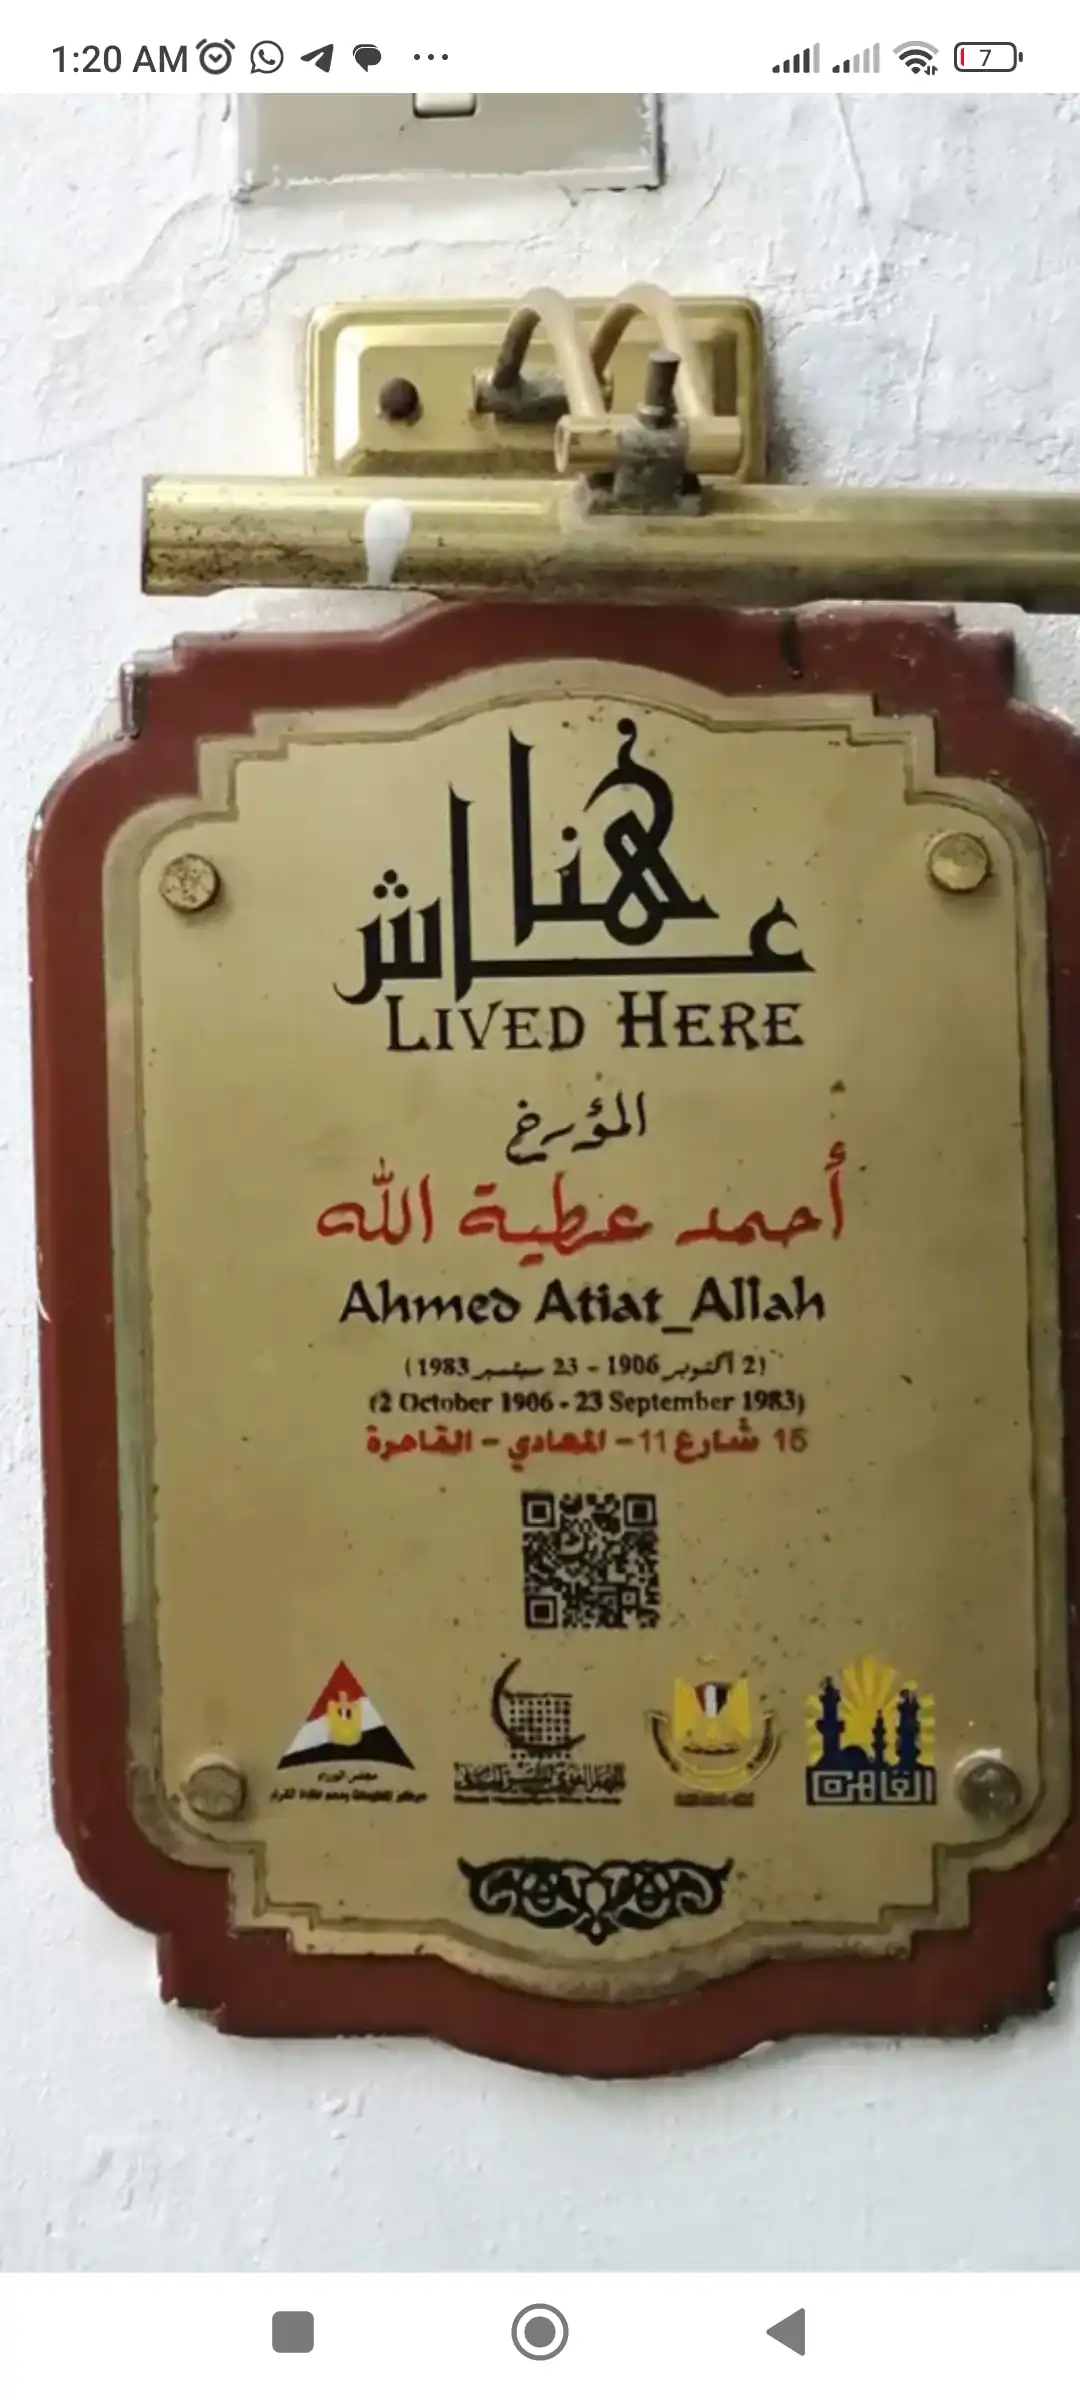 1:20 AM
7
هنا
عاش
LIVED HERE
المؤرخ
أحمد عطية الله
Ahmed Atiat_Allah
(2 أكتوبر 1906 - 23 سبتمبر 1983)
(2 October 1906 - 23 September 1983)
15 شارع 11 - المعادي - القاهرة
مجلس الوزراء
مركز المعلومات ودعم اتخاذ القرار
القاهرة